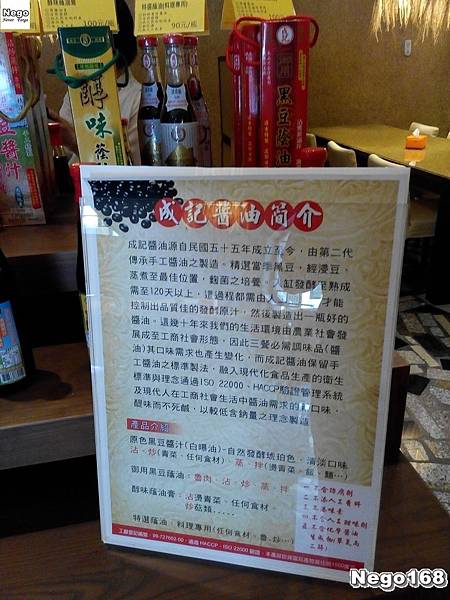 Nego
Never Forget
100元/瓶
90元/瓶
醇
味
蔭
黑豆蔭油
豆醬汁
成記醬油簡介
成記醬油源自民國五十五年成立至今，由第二代
傳承手工醬油之製造，精選當季黑豆，經浸豆、
蒸煮至最佳位置，麴菌之培養，入缸發酵至熟成
需至120天以上，這過程都需由
才能
控制出品質佳的發酵原汁，然後製造出一瓶好的
醬油。這幾十年來我們的生活環境由農業社會發
展成至工商社會形態，因此三餐必需調味品(醬
油)其口味需求也產生變化，而成記醬油保留手
工醬油之標準製法，融入現代化食品生產的衛生
標準與理念通過ISO 22000、HACCP驗證管理系統
及現代人在工商社會生活中醬油需求的口味，
醇味而不死鹹，以較低含鈉量之理念製造
產品介紹
原色黑豆醬汁(白曝油)-自然發酵琥珀色，清淡口味
沾、炒(青菜、任何食材) 蒸、拌(燙青菜、飯、麵…)
御用黑豆蔭油：魯肉、沾、炒、蒸、拌
醇味蔭油膏：沾燙青菜、任何食材、
炒菇類.....
特選蔭油：料理專用(任何食材、魯、炒…)
一、不含防腐劑
二、不添人工香料
三、不添味素
四、不含人工甜味劑
五、不含化學醬油
Nego168